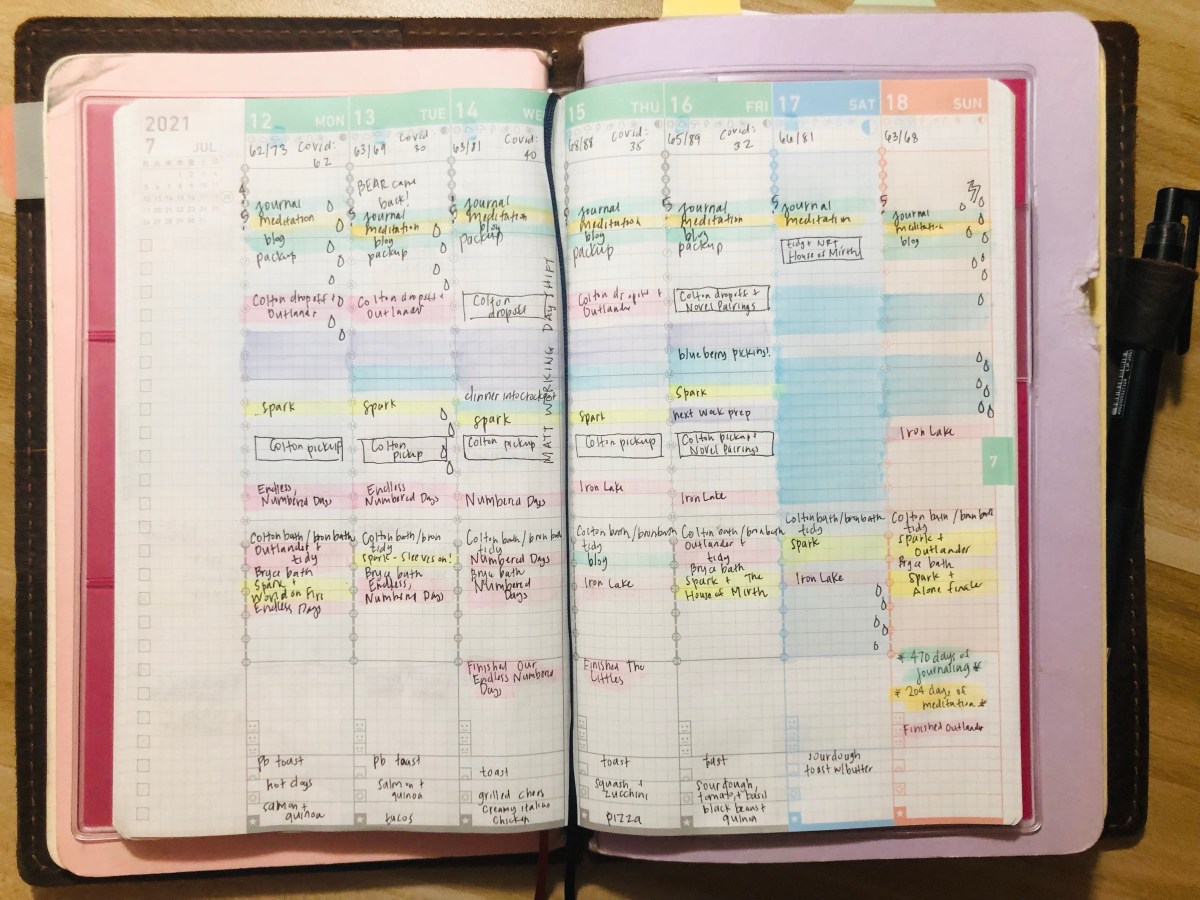 2021
7 JUL
12 MON
62/73 Covid:
62
journal
meditation
blog
packup
Colton dropoff +
Outlander
Spark
Colton pickup
Endless,
Numbered Days
Colton bath/bron bath
Outlander +
tidy
Bryce bath
Spark +
World on Fire
Endless Days
pb toast
hot dogs
salmon +
quinoa
13 TUE
63/69 Covid
30
BEAR came
back!
5 journal
meditation
blog
packup
Colton dropoff +
Outlander
Spark
Colton
pickup
Endless
Numbered Days
Colton bath/bron
tidy
Spark - sleeves on!
Bryce bath
Endless,
Numbered Days
pb toast
salmon +
quinoa
tacos
14 WE
63/81 Covid:
40
5 journal
meditation
blog
packup
Colton
dropoff
MATT WORKING DAY SHIFT
dinner into crockpot
spark
Colton pickup
Numbered Days
Colton bath/bron bath
tidy
Numbered Days
Bryce bath
Numbered
Days
Finished Our
Endless Numbered
Days
toast
grilled chees
Creamy italian
Chicken
15 THU
68/88 Covid:
35
journal
meditation
blog
packup
Colton dropoff +
Outlander
Spark
Colton pickup
Iron Lake
Colton bath/bron bath
tidy
blog
Iron Lake
Finished The
Littles
toast
squash +
zucchini
pizza
16 FRI
65/89 Covid:
32
5 journal
meditation
blog
packup
Colton dropoff +
Novel Pairings
blueberry picking!
Spark
next week prep
Colton pickup +
Novel Pairings
Iron Lake
Colton bath/bron bath
Outlander +
tidy
Bryce bath
Spark + The
House of Mirth
toast
Sourdough,
tomato + basil
black beans +
quinoa
17 SAT
66/81
5 journal
meditation
tidy +
House of Mirth
Colton bath/bron bath
tidy
Spark
Iron Lake
sourdough
toast w/butter
18 SUN
63/68
5
journal
meditation
blog
Iron Lake
Colton bath/bron bath
tidy
Spark +
Outlander
Bryce bath
Spark +
Alone finale
* 470 days of
journaling *
* 204 days of
meditation *
Finished Outlander
7